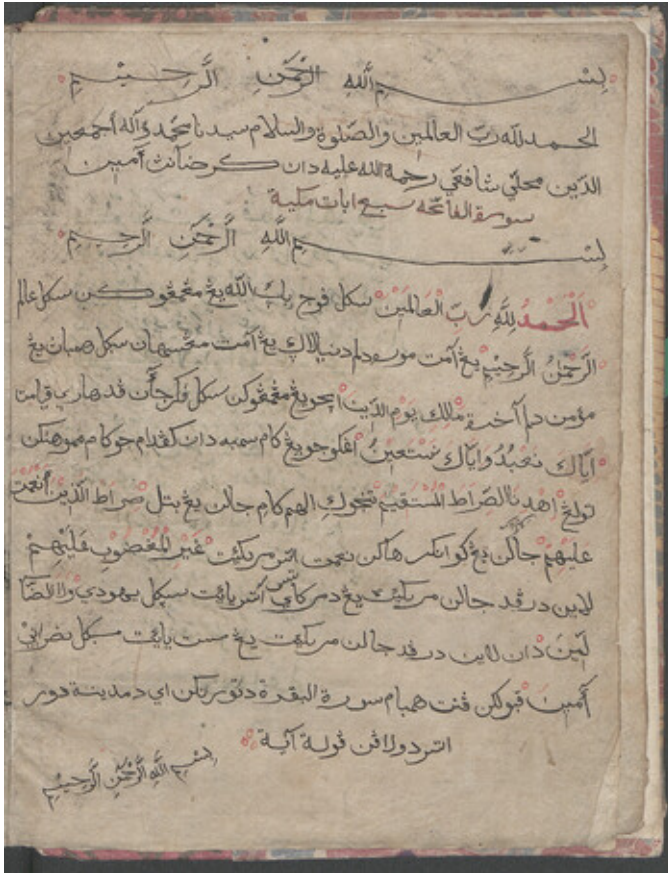 بِسْمِ اللَّهِ الرَّحْمَنِ الرَّحِيمِ
الحمد لله رب العالمين والصلوة والسلام سيدنا محمد وآله اجمعين
الدين محلي شافعي رحمة الله عليه دان كرضاأنث آمين
سورة الفاتحه سبع ايات مكية
بِسْمِ اللَّهِ الرَّحْمَنِ الرَّحِيمِ
اَلْحَمْدُ لِلَّهِ رَبِّ الْعَالَمِينَ سكل فوج باݢ الله يڠ سكل عالم
الرَّحْمَنُ الرَّحِيمِ يڠ امت موره دالم دنيا لاݢ يڠ امت مڠسيهان سكل همبان يڠ
مؤمن دالم آخرة مَالِكِ يَوْمِ الدِّينِ سكل فكرجأن فد هاري قيامة
اِيَّاكَ نَعْبُدُ وَاِيَّاكَ نَسْتَعِينُ اڠكو جو يڠ كام سمبه دان كفدام جو كام موهنكن
تولڠ اِهْدِنَا الصِّرَاطَ الْمُسْتَقِيمَ الهم كام جالن يڠ بتل صِرَاطَ الَّذِينَ أَنْعَمْتَ
عَلَيْهِمْ جالن يڠ نعمت اتس مريكئت غَيْرِ الْمَغْضُوبِ عَلَيْهِمْ
لاين درفد جالن مريكئت يڠ اتس يائت سكل يهودي وَلَا الضَّا
لِّينَ دان لاين درفد جالن مريكئت يڠ سست يائت سكل نصراني
آمِينَ قبولكن همبام سورة البقرة دتورنكن اي د مدينة دور
اتس دولافن فوله آية
بِسْمِ اللَّهِ الرَّحْمَنِ الرَّحِيمِ